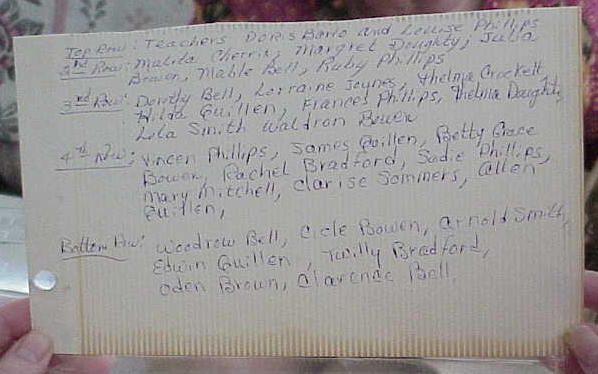 Top Row: Teachers Doris Barlo and Louise Phillips
2nd Row: Malita Cherrix, Margret Doughty, Julia
Bowen, Mable Bell, Ruby Phillips
3rd Row: Dorothy Bell, Lorraine Joynes, Thelma Crockett
Hilda Quillen, Frances Phillips, Thelma Daughty,
Lola Smith Waldron Bowen
4th Row: Vincen Phillips, James Quillen, Betty Grace
Bowen, Rachel Bradford, Sadie Phillips,
Mary Mitchell, Clarise Sommers, Allen
Quillen,
Bottom Row: Woodrow Bell, Cicle Bowen, Arnold Smith,
Edwin Quillen, Twilly Bradford,
Oden Brown, Clarence Bell.